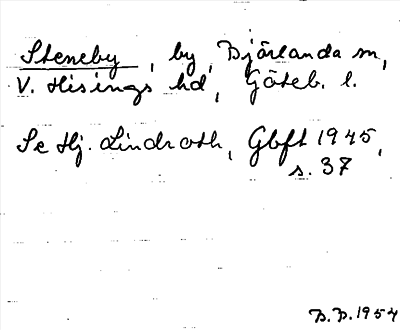 Steneby, by, Björlanda sn,
V. Hisings hd, Göteb. l.
Se Hj. Lindroth, Gbft 1945,
s. 37
B.P. 1954